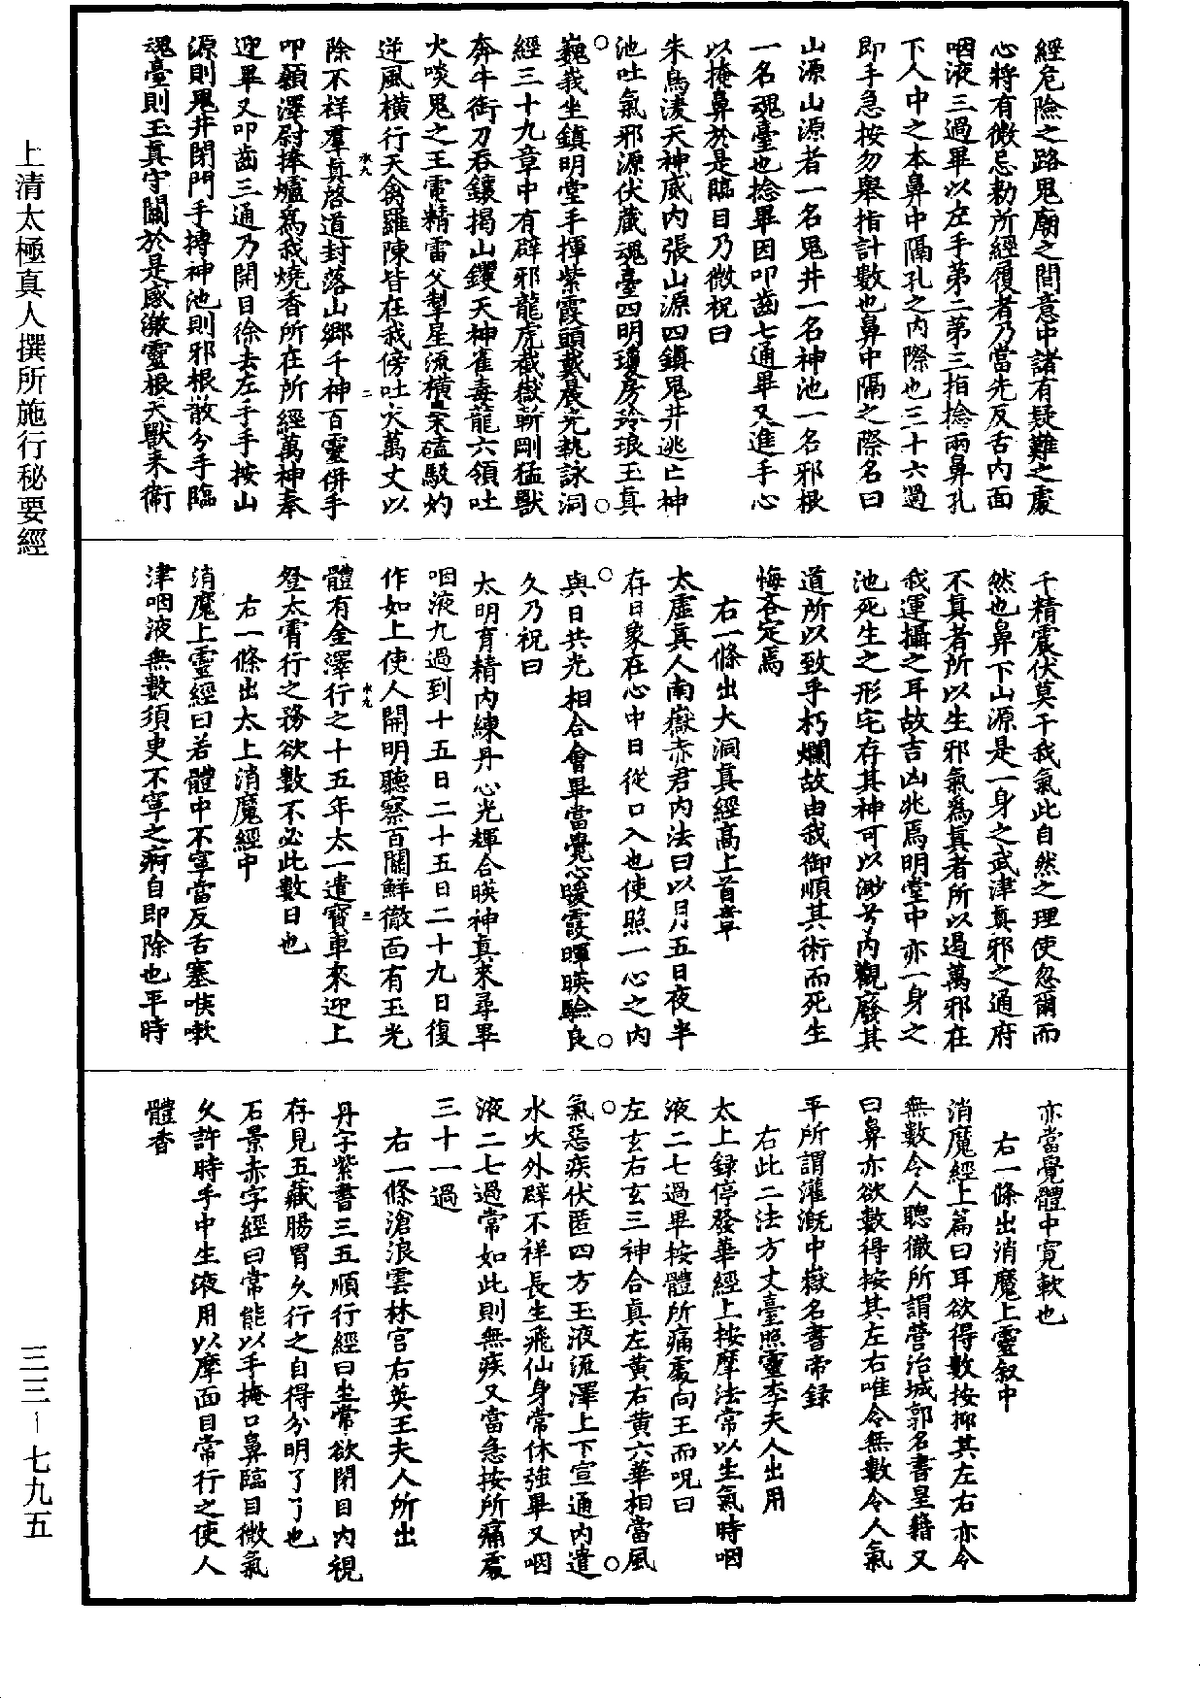 經危險之路鬼廟之間意中諸有疑難之處
心將有微忌勑所經履者乃當先反舌内面
咽液三過畢以左手第二第三指捻兩鼻孔
下人中之本鼻中隔孔之内際也三十六過
即手急按勿舉指計數也鼻中隔之際名曰
山源山源者一名鬼井一名神池一名邪根
一名魂臺也捻畢因叩齒七通畢又進手心
以掩鼻於是臨目乃微祝曰
朱鳥凌天神威内張山源四鎮鬼井逃亡神
池吐氣邪源伏藏魂臺四明瓊房玲琅玉真
巍峩坐鎮明堂手揮紫霞頭戴晨光執詠洞
經三十九章中有辟邪龍虎截嶽斬剛猛獸
奔牛銜刀吞鑲揭山钁天神雀毒龍六領吐
火啖鬼之王電精雷父掣星流橫梟磕駮灼
逆風橫行天禽羅陳皆在我傍吐火萬丈以
除不祥羣真啓道封落山鄉千神百靈併手
叩顙澤尉捧爐為我燒香所在所經萬神奉
迎畢又叩齒三通乃開目徐去左手手按山
源則鬼井閉門手搏神池則邪根散分手臨
魂臺則玉真守關於是感激靈根天獸來衛
千精震伏莫干我氣此自然之理使忽爾而
然也鼻下山源是一身之武津真邪之通府
不真者所以生邪氣為真者所以遏萬邪在
我運攝之耳故吉凶兆焉明堂中亦一身之
池死生之形宅存其神可以渺兮内觀廢其
道所以致乎朽爛故由我御順其術而死生
悔吝定焉
右一條出大洞真經高上首章
太虛真人南嶽赤君内法曰以月五日夜半
存日象在心中日從口入也使照一心之内
與日共光相合會畢當覺心暖霞暉暎驗良
久乃祝曰
太明育精内練丹心光輝合暎神真來尋畢
咽液九過到十五日二十五日二十九日復
作如上使人開明聽察百關鮮徹面有玉光
體有金澤行之十五年太一遣寶車來迎上
登太霄行之務欲數不必此數日也
右一條出太上消魔經中
消魔上靈經曰若體中不寧當反舌塞喉嗽
津咽液無數須臾不寧之痾自即除也平時
亦當覺體中寬軟也
右一條出消魔上靈叙中
消魔經上篇曰耳欲得數按抑其左右亦令
無數令人聰徹所謂營治城郭名書皇籍又
曰鼻亦欲數得按其左右唯令無數令人氣
平所謂灌溉中嶽名書帝録
右此二法方丈臺照靈李夫人出用
太上録停發華經上按摩法常以生氣時咽
液二七過畢按體所痛處向王而呪曰
左玄右玄三神合真左黄右黄六華相當風
氣惡疾伏匿四方玉液流澤上下宣通内遣
水火外辟不祥長生飛仙身常休強畢又咽
液二七過常如此則無疾又當急按所痛處
三十一過
右一條滄浪雲林宮右英王夫人所出
丹字紫書三五順行經曰坐常欲閉目内視
存見五藏腸胃久行之自得分明了了也
石景赤字經曰常能以手掩口鼻臨目微氣
久許時手中生液用以摩面目常行之使人
體香
上清太極真人撰所施行秘要經
三三-七九五